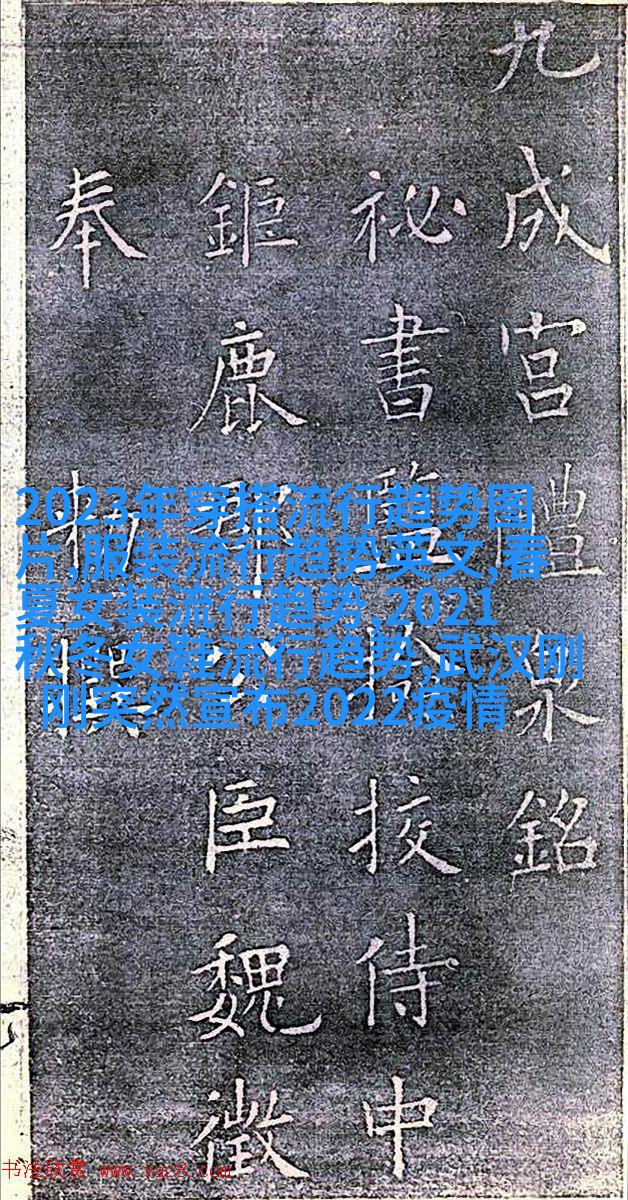 九成宮醴泉銘
祕書監撿挍侍中
鉅鹿郡公臣魏徵
奉勑撰
2023年穿搭流行趋势图
片,服装流行趋势英文,春
夏女装流行趋势,2021
秋冬女鞋流行趋势,武汉刚
刚突然宣布2022疫情
书法欣赏 www.yac8.com